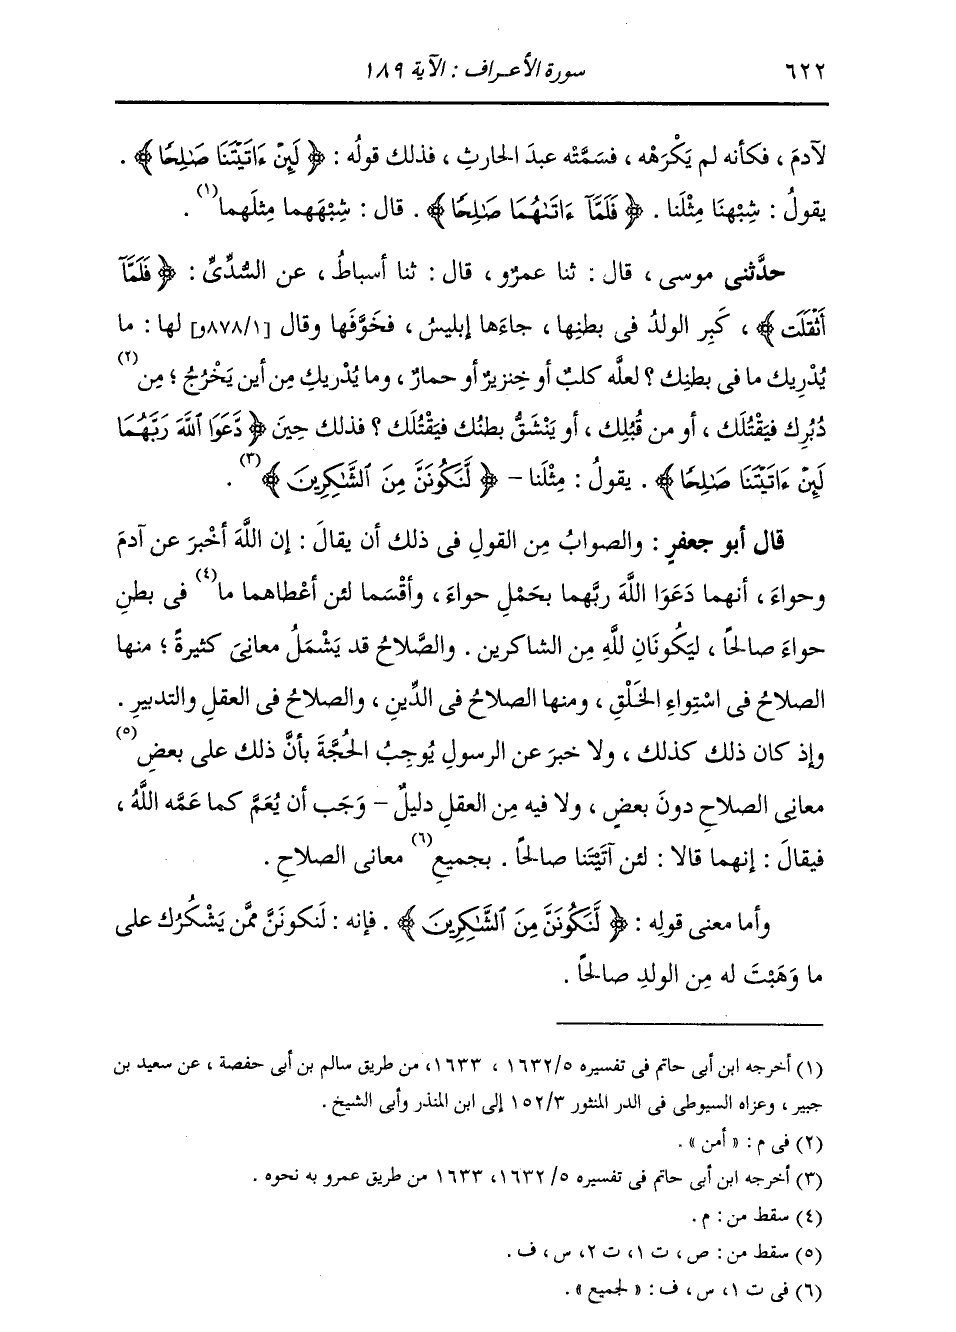 ٦٢٢ سورة الأعراف : الآية ١٨٩
لآدمَ ، فكأنه لم يَكْرَهْه ، فسَمَّتْه عبدَ الحارثِ ، فذلك قولُه : ﴿ لَئِنْ ءَاتَيْتَنَا صَٰلِحًا ﴾ .
يقولُ : شِبْهنَا مِثْلَنا . ﴿ فَلَمَّآ ءَاتَىٰهُمَا صَٰلِحًا ﴾ . قال : شِبْهَهما مثلَهما(١) .
حدَّثنى موسى ، قال : ثنا عمرٌو ، قال : ثنا أسباطُ ، عن السُّدِّىِّ : ﴿ فَلَمَّآ
أَثْقَلَت ﴾ ، كَبِر الولدُ فى بطنِها ، جاءَها إبليسُ ، فخَوَّفَها وقال [٨٧٨/١و] لها : ما
يُدْرِيك ما فى بطنِك ؟ لعلَّه كلبٌ أو خِنزيرٌ أو حمارٌ ، وما يُدْريكِ مِن أين يَخْرُجُ ؛ مِن(٢)
دُبُرِك فيَقْتُلَك ، أو من قُبُلِك ، أو يَنْشَقُّ بطنُك فيَقْتُلَك ؟ فذلك حِينَ ﴿ دَّعَوَا ٱللَّهَ رَبَّهُمَا
لَئِنْ ءَاتَيْتَنَا صَٰلِحًا ﴾ . يقولُ : مِثْلَنا – ﴿ لَّنَكُونَنَّ مِنَ ٱلشَّٰكِرِينَ ﴾(٣) .
قال أبو جعفرٍ : والصوابُ مِن القولِ فى ذلك أن يقالَ : إن اللَّهَ أخْبرَ عن آدمَ
وحواءَ ، أنهما دَعَوَا اللَّهَ ربَّهما بحَمْلِ حواءَ ، وأقْسَما لئن أعْطاهما ما(٤) فى بطنِ
حواءَ صالحًا ، ليَكُونَانِ للَّهِ مِن الشاكرين . والصَّلاحُ قد يَشْمَلُ معانِىَ كثيرةً ؛ منها
الصلاحُ فى اسْتِواءِ الخَلْقِ ، ومنها الصلاحُ فى الدِّينِ ، والصلاحُ فى العقلِ والتدبيرِ .
وإذ كان ذلك كذلك ، ولا خبرَ عن الرسولِ يُوجِبُ الحُجَّةَ بأنَّ ذلك على بعضِ(٥)
معانِى الصلاحِ دونَ بعضٍ ، ولا فيه مِن العقلِ دليلٌ – وَجَب أن يُعَمَّ كما عَمَّه اللَّهُ ،
فيقالَ : إنهما قالا : لئن آتَيْتَنا صالحًا . بجميعِ(٦) معانى الصلاحِ .
وأما معنى قولِه : ﴿ لَّنَكُونَنَّ مِنَ ٱلشَّٰكِرِينَ ﴾ . فإنه : لَنكونَنَّ ممَّن يَشْكُرُك على
ما وَهَبْتَ له مِن الولدِ صالحًا .
(١) أخرجه ابن أبى حاتم فى تفسيره ١٦٣٢/٥ ، ١٦٣٣، من طريق سالم بن أبى حفصة ، عن سعيد بن
جبير ، وعزاه السيوطى فى الدر المنثور ١٥٢/٣ إلى ابن المنذر وأبى الشيخ .
(٢) فى م : « أمن » .
(٣) أخرجه ابن أبى حاتم فى تفسيره ٥/ ١٦٣٢، ١٦٣٣ من طريق عمرو به نحوه .
(٤) سقط من : م .
(٥) سقط من : ص ، ت ١، ت ٢، س ، ف .
(٦) فى ت ١، س ، ف : « لجميع » .